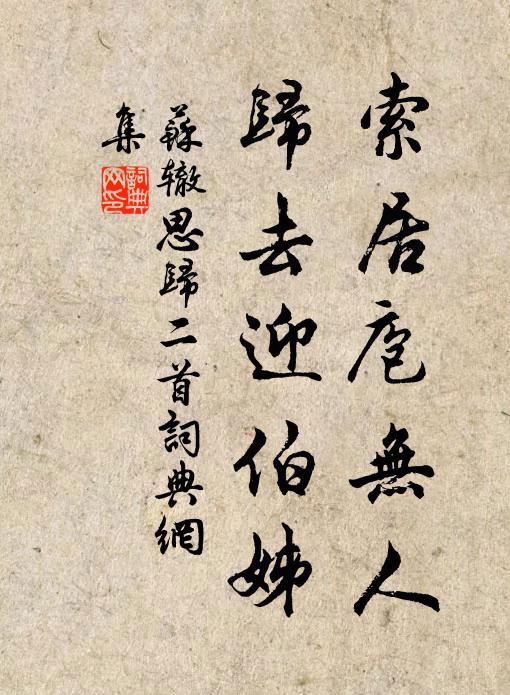 索居庖無人
歸去迎伯姊
蘇辙思歸二首詞典網
集
詞典
网印